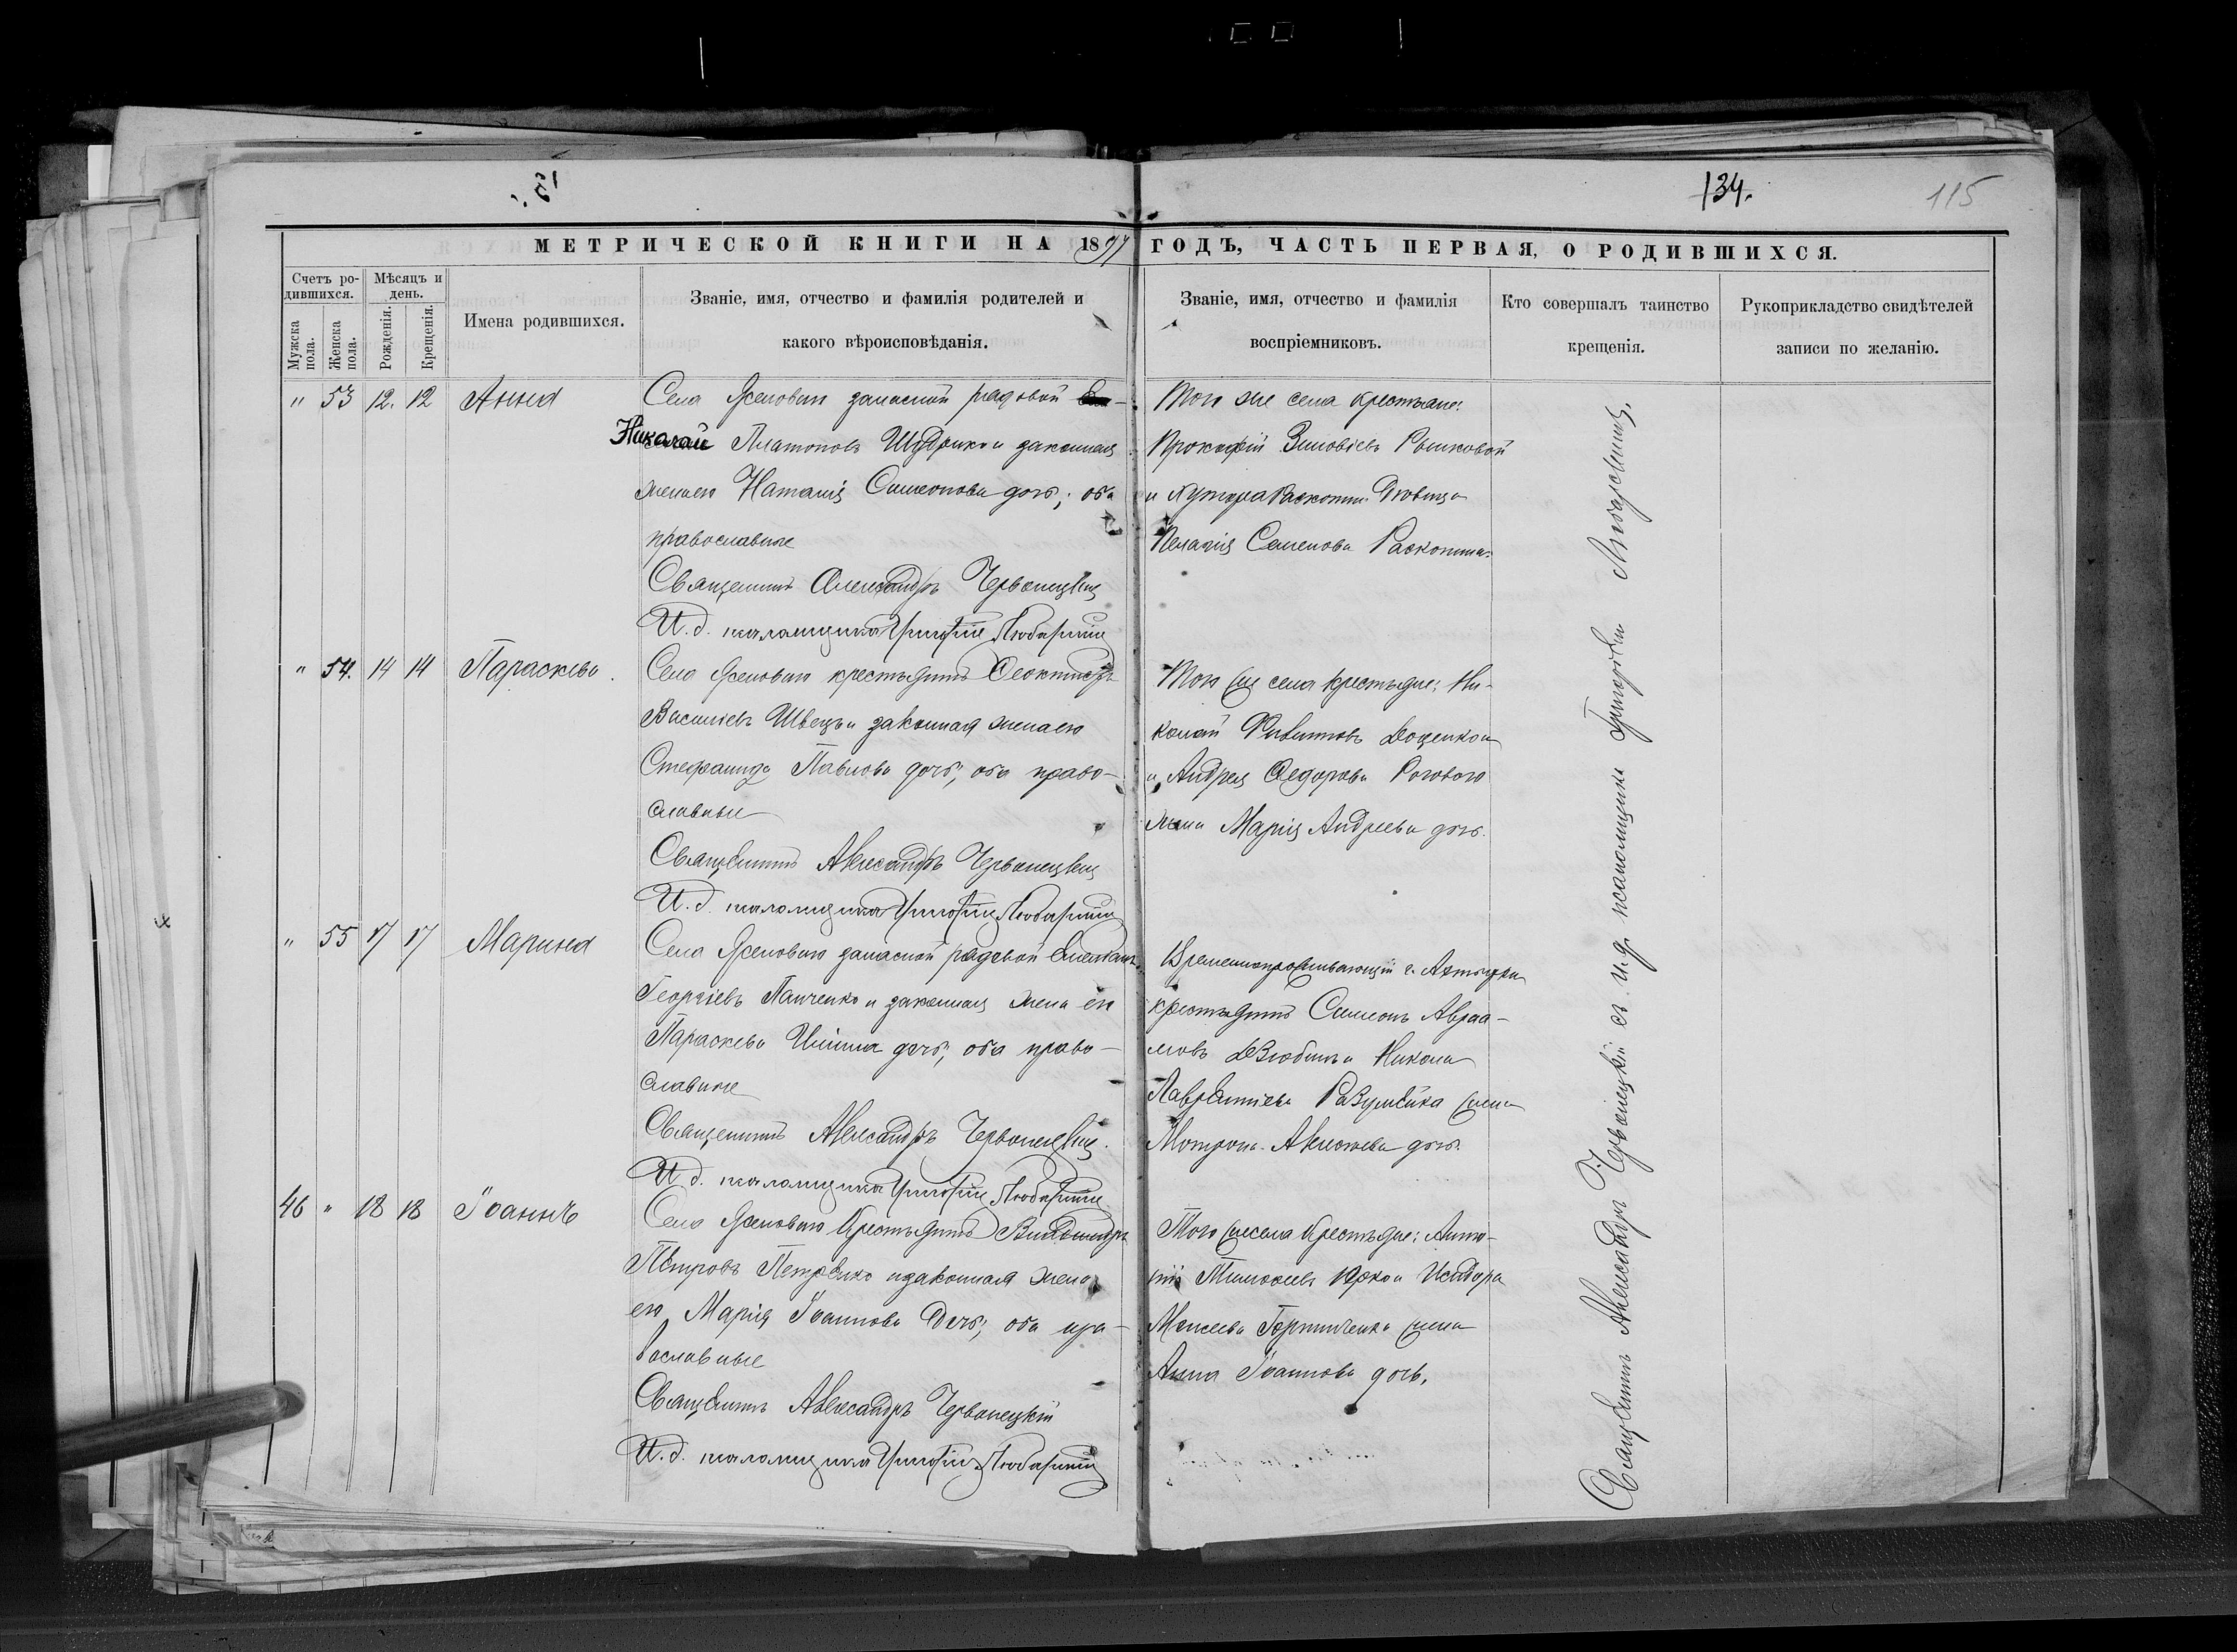 134.
115
МЕТРИЧЕСКОЙ КНИГИ НА 1897 ГОДЪ, ЧАСТЬ ПЕРВАЯ, О РОДИВШИХСЯ.
Счетъ ро-
дившихся.
Мужска пола.
Женска пола.
Мѣсяцъ и
день.
Рожденія.
Крещенія.
Имена родившихся.
Званіе, имя, отчество и фамилія родителей и
какого вѣроисповѣданія.
Званіе, имя, отчество и фамилія
воспріемниковъ.
Кто совершалъ таинство
крещенія.
Рукоприкладство свидѣтелей
записи по желанію.
" 53 12. 12 Анна
Села Ясеноваго запасной рядовой
Николай Платоновъ и законная
жена его Наталія Симеонова дочь; оба
православные
Священникъ Александръ Червонецкій
И. д. псаломщика Григорій Любарскій
Того же села крестьяне:
Прокофій Зиновіевъ
и хутора дѣвица
Пелагія Семенова
" 54. 14 14 Параскева.
Села Ясеноваго крестьянинъ Феоктистъ
Василіевъ Швецъ и законная жена его
Стефанида Павлова дочь; оба право-
славные
Священникъ Александръ Червонецкій
И. д. псаломщика Григорій Любарскій
Того же села крестьяне: Ни-
колай Доценко
и Андрея Федорова Рогового
жена Марія Андреева дочь.
" 55 17 17 Марина
Села Ясеноваго запасной рядовой
Георгіевъ Панченко и законная жена его
Параскева Ильина дочь; оба право-
славные
Священникъ Александръ Червонецкій.
И. д. псаломщика Григорій Любарскій
Временнопроживающій г. Ахтырки
крестьянинъ Симеонъ Авраа-
мовъ и Николая
Лаврентіева жена
Мотрона Алексѣева дочь.
46 " 18 18 Іоаннъ
Села Ясеноваго крестьянинъ Владиміръ
Петровъ Петренко и законная жена
его Марія Іоаннова дочь; оба пра-
вославные
Священникъ Александръ Червонецкій
И. д. псаломщика Григорій Любарскій
Того же села крестьяне:
Тимофеевъ Юрко и Исидора
Моисеева жена
Анна Іоаннова дочь.
Священникъ Александръ Червонецкій съ и. д. псаломщика Григоріемъ Любарскимъ.